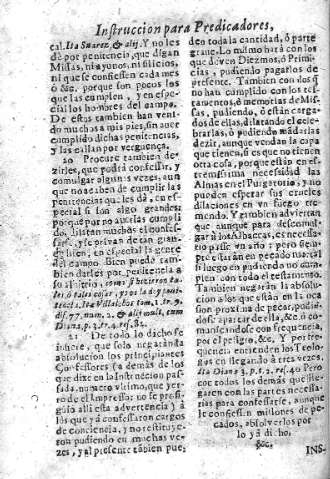 Instruccion para Predicadores,
cal. Ita Suarez, & alij. Y no les
dè por penitencia, que digan
Missas, ni ayunos, ni silicios,
ni que se confiessen cada mes
ò &c. porque son pocos los
que las cumplen, y en espe-
cial los hombres del campo.
De estos tambien han veni-
do muchos a mis pies, sin aver
cumplido dichas penitencias,
y las callan por verguença.
20 Procure tambien de-
zirles, que podrà confessar, y
comulgar algunas vezes, aun
que no acaben de cumplir las
penitencias que les dà, en es-
pecial si son algo grandes:
porque por no averlas cumpli
do, dilatan muchos el confes-
sarse, y se privan de tan gran-
de bien, en especial la gente
del campo. Bien puede tam-
bien darles por penitencia a
su arbitrio
dis. 77. num. 2. & alij mult. cum
Diana, p. 3. tr. 4. ref. 82.
21 De todo lo dicho se
infiere, que solo negaràn la
absolucion los principiantes
Confessores (à demàs de los
que dize en la Instruccion pas-
sada, numero ultimo, que yer-
ro de el Impressor no se pro-
siguiò alli esta advertencia) à
los que yà confessaron cargos
de conciencia, y no restituye-
ron pudiendo en muchas ve-
zes, y al presente tãbien pue-
den toda la cantidad, ò parte
grave. Lo mismo harà con los
que deven Diezmos, ò Primi-
cias, pudiendo pagarlos de
presente. Tambien con los q̃
no han cumplido con los tes-
tamentos, ò memorias de Mis-
sas, pudiendo, ò estàn carga-
dos de ellas, dilatando el cele-
brarlas, ò pudiendo mãdarlas
dezir, aunque vendan la capa
que tienen, si es que no tienen
otra cosa, porque estàn en es-
tremissima necessidad las
Almas en el Purgatorio, y no
pueden esperar sus crueles
dilaciones en un fuego tre-
mendo. Y tambien adviertan
que aunque para descomul-
gar à los Albaceas, es necessa-
rio passe un año; pero siem-
pre estaràn en pecado mortal
si luego en pudiendo no cum-
plen con todo el testamento.
Tambien negaràn la absolu-
cion à los que estàn en la oca
sion proxima de pecar, podiẽ-
dose apartar de ella, ò co-
municandose con frequencia,
por el peligro, &c. Y por fre-
quencia, entienden los Teolo-
gos en llegando à tres vezes.
Ita Diana 3. p. t. 2. ref. 40. Pero
con todos los demàs que llega-
ren con las partes necessa-
rias para confessarse, aunque
le confiessen millones de pe-
cados, absolverlos por
lo yà dicho,
&c.
INS-